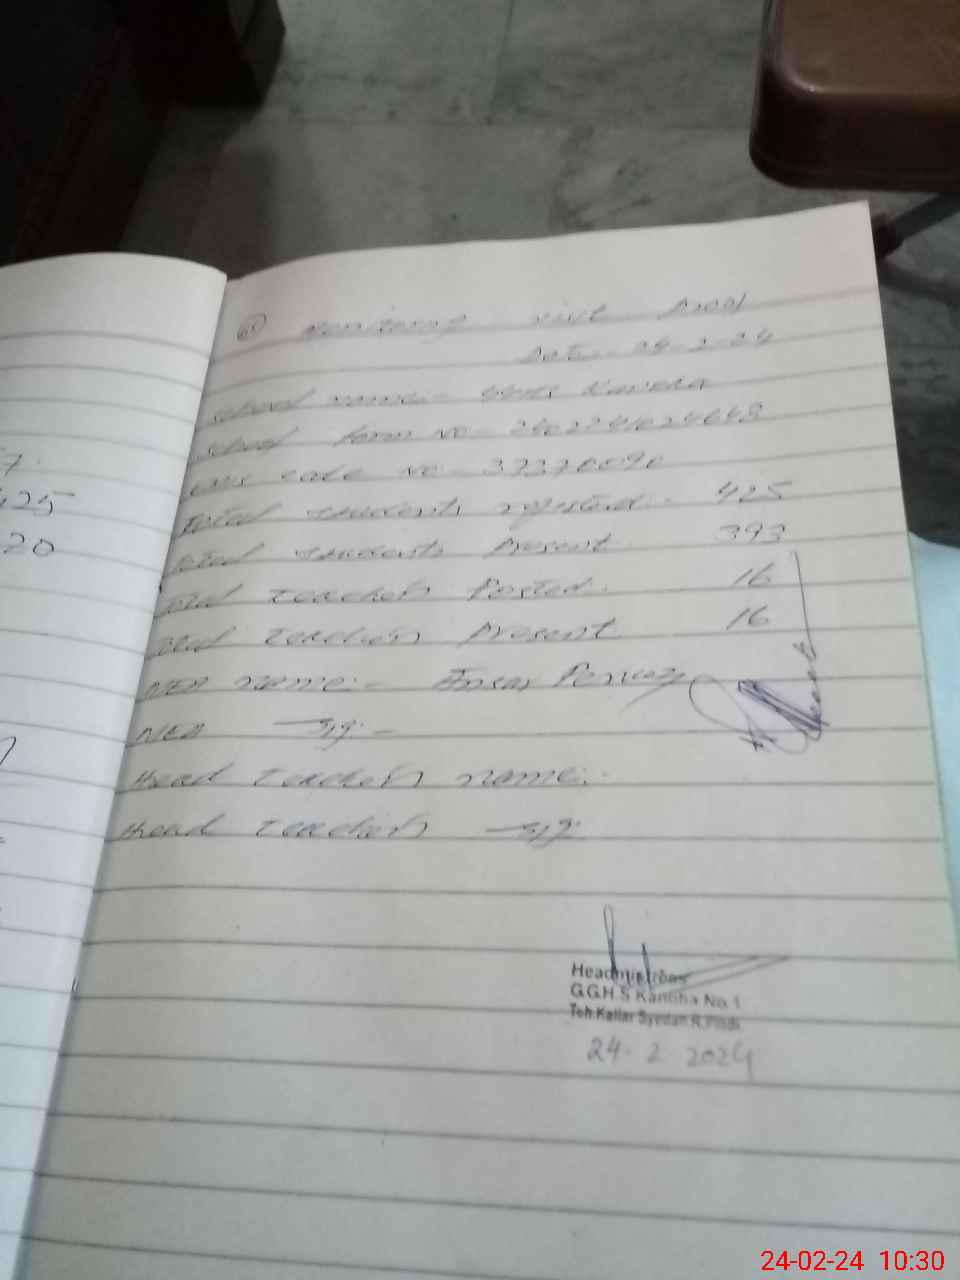 7.
425
20
Monitoring visit
Date:- 24-2-24
School name:- GGHS Kanoha
School form no -
EMIS code no - 37370090
Total students registerd:- 425
Total students present 393
Total teachers Posted:- 16
Total teachers present 16
MEA name:- Ansar Pervaz
MEA sig:-
Head teacher name:-
Head teacher sig:
Headmistress
G.G.H.S Kanoha No.1
Teh.Kallar Syedan R.Pindi
24-2 2024
24-02-24 10:30